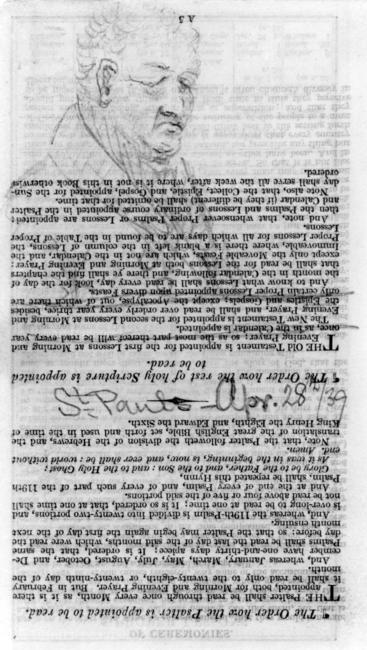 ¶ The Order how the Psalter is appointed to be read.
THE Psalter shall be read through once every Month, as it is there
appointed, both for Morning and Evening Prayer. But in February
it shall be read only to the twenty-eighth, or twenty-ninth day of the
month.
And, whereas January, March, May, July, August, October, and De-
cember have one-and-thirty days apiece; It is ordered, that the same
Psalms shall be read the last day of the said months, which were read the
day before: so that the Psalter may begin again the first day of the next
month ensuing.
And, whereas the 119th Psalm is divided into twenty-two portions, and
is over-long to be read at one time; It is so ordered, that at one time shall
not be read above four or five of the said portions.
And at the end of every Psalm, and of every such part of the 119th
Psalm, shall be repeated this Hymn,
Glory be to the Father, and to the Son: and to the Holy Ghost;
As it was in the beginning, is now, and ever shall be: world without
end. Amen.
Note, that the Psalter followeth the division of the Hebrews, and the
translation of the great English Bible, set forth and used in the time of
King Henry the Eighth, and Edward the Sixth.
St Pauls Nov. 28th/39
¶ The Order how the rest of holy Scripture is appointed
to be read.
THE Old Testament is appointed for the first Lessons at Morning and
Evening Prayer; so as the most part thereof will be read every year
once, as in the Calendar is appointed.
The New Testament is appointed for the second Lessons at Morning and
Evening Prayer, and shall be read over orderly every year thrice, besides
the Epistles and Gospels; except the Apocalypse, out of which there are
only certain Proper Lessons appointed upon divers Feasts.
And to know what Lessons shall be read every day, look for the day of
the month in the Calendar following, and there ye shall find the chapters
that shall be read for the Lessons both at Morning and Evening Prayer;
except only the Moveable Feasts, which are not in the Calendar, and the
Immoveable, where there is a blank left in the column of Lessons, the
Proper Lessons for all which days are to be found in the Table of Proper
Lessons.
And note, that whensoever Proper Psalms or Lessons are appointed,
then the Psalms and Lessons of ordinary course appointed in the Psalter
and Calendar (if they be different) shall be omitted for that time.
Note also, that the Collect, Epistle, and Gospel, appointed for the Sun-
day shall serve all the week after, where it is not in this Book otherwise
ordered.
A 3
OF CEREMONIES